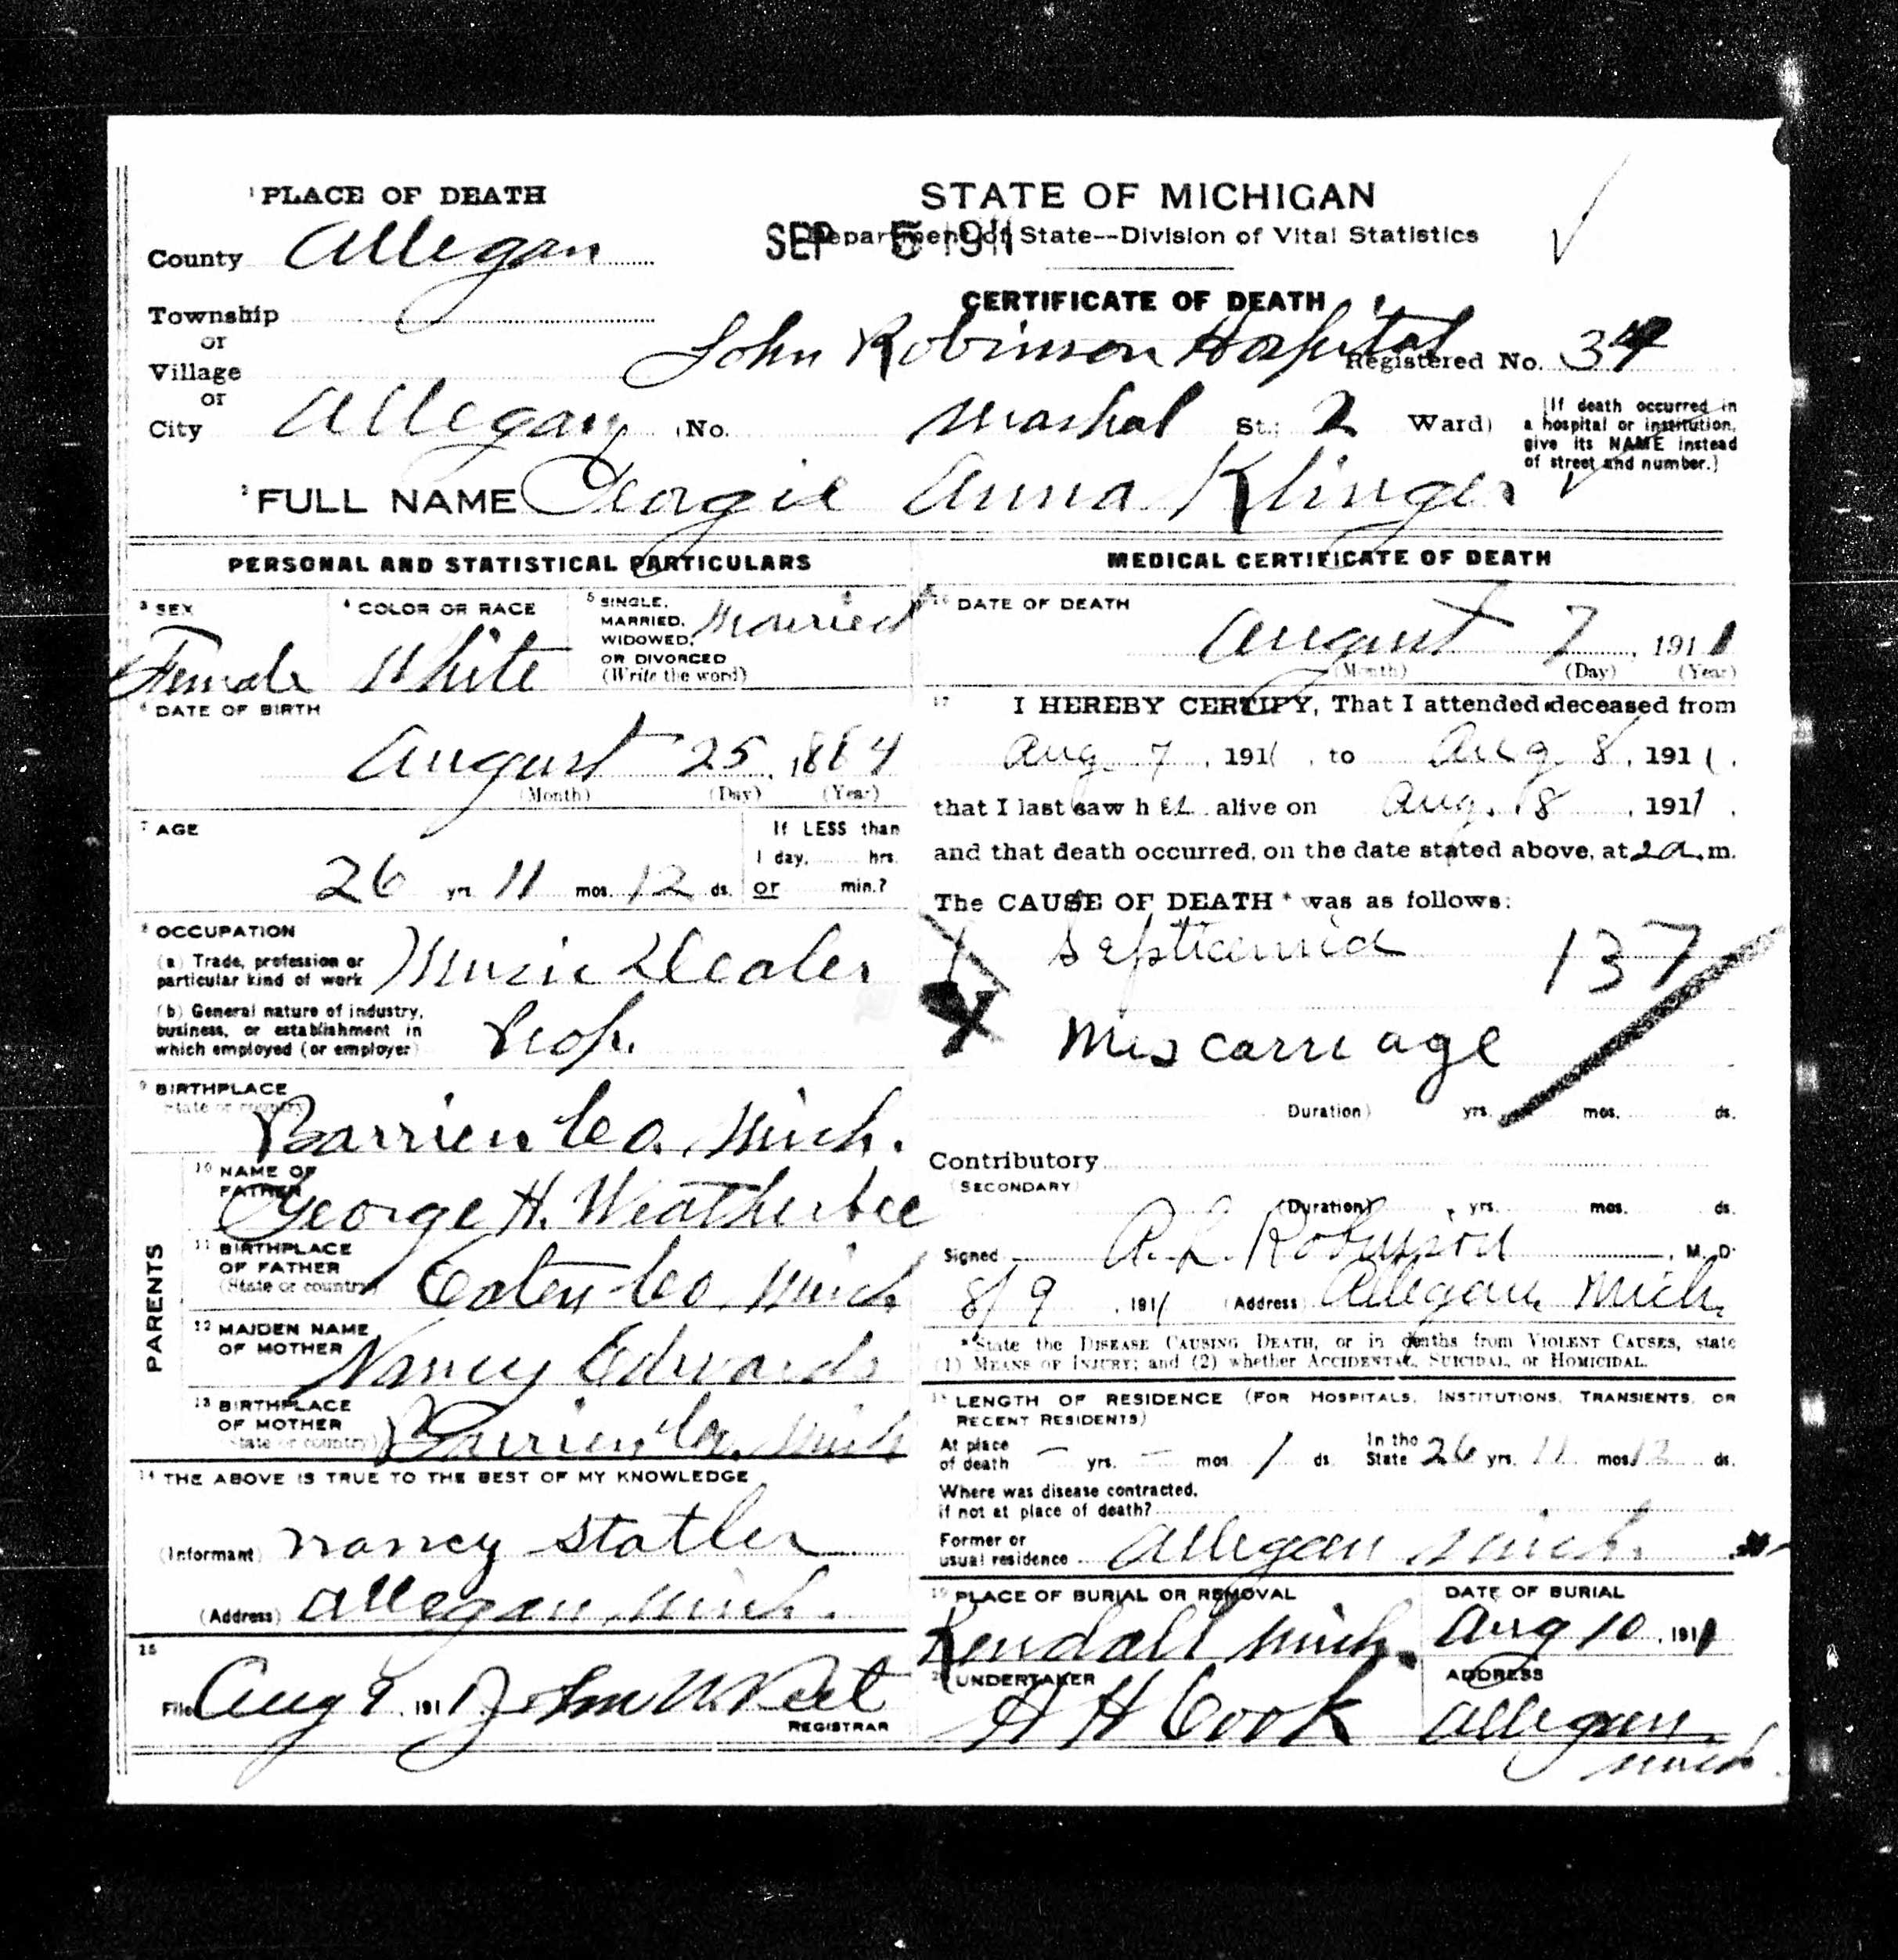 ¹PLACE OF DEATH
STATE OF MICHIGAN
Department of State--Division of Vital Statistics
SEP 5 1911
County Allegan
CERTIFICATE OF DEATH
Township
or
John Robinson Hospital
Registered No. 34
Village
or
City Allegan No. Mashal St.; 2 Ward)
[If death occurred in
a hospital or institution,
give its NAME instead
of street and number.]
²FULL NAME Georgie Anna Klinger
PERSONAL AND STATISTICAL PARTICULARS
³ SEX
Female
⁴ COLOR OR RACE
White
⁵ SINGLE,
MARRIED,
WIDOWED,
OR DIVORCED
(Write the word)
Married
⁶ DATE OF BIRTH
August 25, 1884
(Month) (Day) (Year)
⁷ AGE
26 yrs. 11 mos. 12 ds.
If LESS than
1 day, hrs.
or min.?
⁸ OCCUPATION
(a) Trade, profession or
particular kind of work
Music Dealer
(b) General nature of industry,
business, or establishment in
which employed (or employer)
Prop.
⁹ BIRTHPLACE
(State or country)
Barrien Co. Mich.
PARENTS
¹⁰ NAME OF
FATHER
George H. Weatherbee
¹¹ BIRTHPLACE
OF FATHER
(State or country)
Eaten Co. Mich
¹² MAIDEN NAME
OF MOTHER
Nancy Edwards
¹³ BIRTHPLACE
OF MOTHER
(State or country)
Barrien Co. Mich
¹⁴ THE ABOVE IS TRUE TO THE BEST OF MY KNOWLEDGE
(Informant) Nancy Statler
(Address) Allegan Mich.
¹⁵
Filed Aug 9, 1911 John W.
REGISTRAR
MEDICAL CERTIFICATE OF DEATH
¹⁶ DATE OF DEATH
August 7, 1911
(Month) (Day) (Year)
¹⁷ I HEREBY CERTIFY, That I attended deceased from
Aug. 7, 1911, to Aug. 8, 1911.
that I last saw her alive on Aug. 8, 1911.
and that death occurred, on the date stated above, at 2 a. m.
The CAUSE OF DEATH* was as follows:
Septicemia
137
Miscarriage
(Duration) yrs. mos. ds.
Contributory
(SECONDARY)
(Duration) yrs. mos. ds.
Signed A. L. Robinson, M. D.
8/9, 1911 (Address) Allegan, Mich.
*State the DISEASE CAUSING DEATH, or in deaths from VIOLENT CAUSES, state
(1) MEANS OF INJURY; and (2) whether ACCIDENTAL, SUICIDAL, or HOMICIDAL.
¹⁸ LENGTH OF RESIDENCE (FOR HOSPITALS, INSTITUTIONS, TRANSIENTS, OR
RECENT RESIDENTS)
At place
of death - yrs. - mos. 1 ds.
In the
State 26 yrs. 11 mos. 12 ds.
Where was disease contracted,
if not at place of death?
Former or
usual residence Allegan Mich.
¹⁹ PLACE OF BURIAL OR REMOVAL
Kendall Mich.
DATE OF BURIAL
Aug 10, 1911
²⁰ UNDERTAKER
H H Cook
ADDRESS
Allegan
Mich.